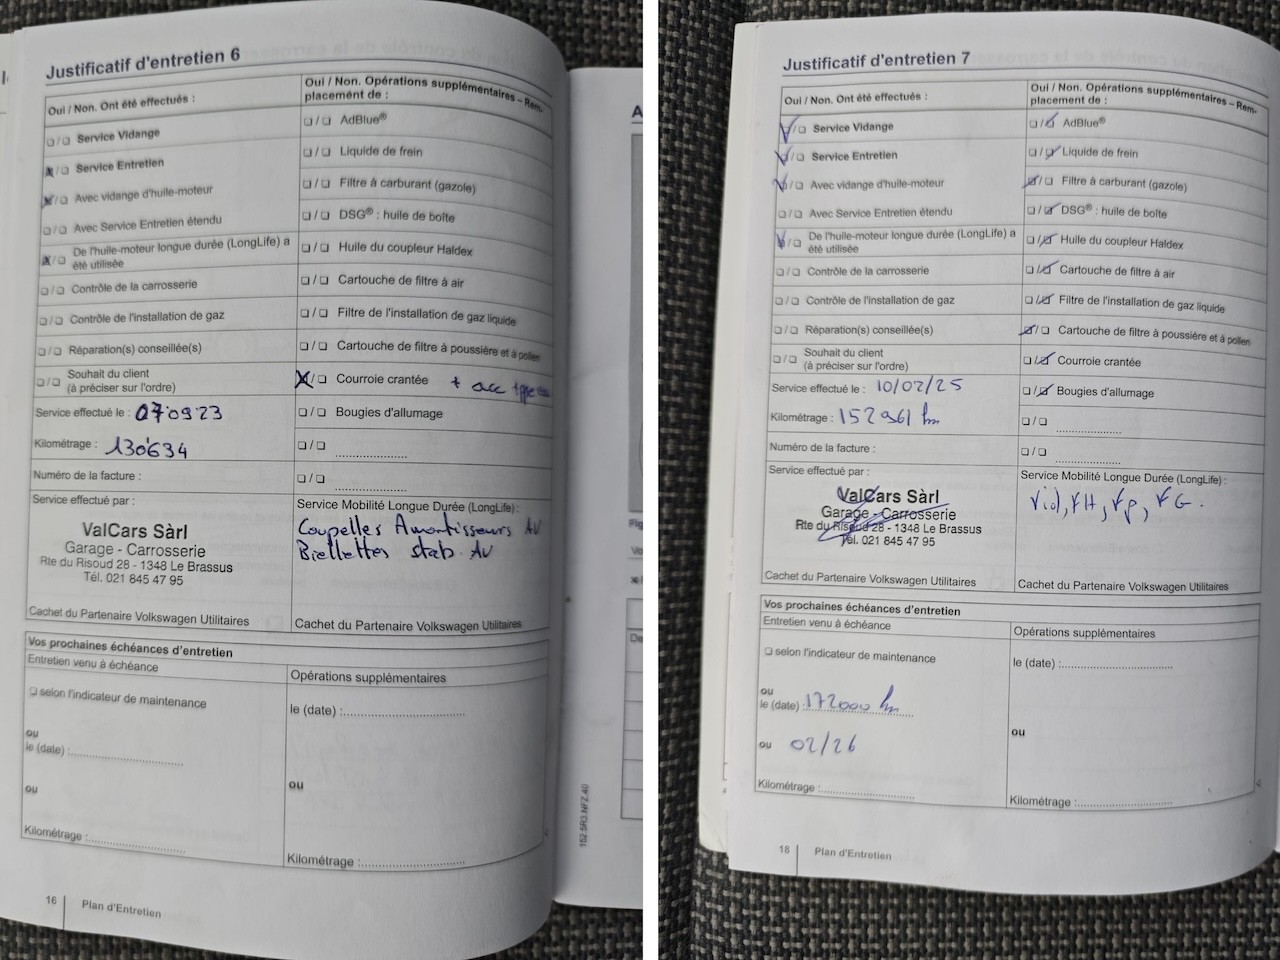 Justificatif d'entretien 6
Oui / Non. Ont été effectués :
❏ / ❏ Service Vidange
☒ / ❏ Service Entretien
☒ / ❏ Avec vidange d'huile-moteur
❏ / ❏ Avec Service Entretien étendu
☒ / ❏ De l'huile-moteur longue durée (LongLife) a
été utilisée
❏ / ❏ Contrôle de la carrosserie
❏ / ❏ Contrôle de l'installation de gaz
❏ / ❏ Réparation(s) conseillée(s)
❏ / ❏ Souhait du client
(à préciser sur l'ordre)
Service effectué le : 07 09 23
Kilométrage : 130'634
Numéro de la facture :
Service effectué par :
ValCars Sàrl
Garage - Carrosserie
Rte du Risoud 28 - 1348 Le Brassus
Tél. 021 845 47 95
Cachet du Partenaire Volkswagen Utilitaires
Oui / Non. Opérations supplémentaires – Rem-
placement de :
❏ / ❏ AdBlue®
❏ / ❏ Liquide de frein
❏ / ❏ Filtre à carburant (gazole)
❏ / ❏ DSG® : huile de boîte
❏ / ❏ Huile du coupleur Haldex
❏ / ❏ Cartouche de filtre à air
❏ / ❏ Filtre de l'installation de gaz liquide
❏ / ❏ Cartouche de filtre à poussière et à pollen
☒ / ❏ Courroie crantée + acc
❏ / ❏ Bougies d'allumage
❏ / ❏ ....................
❏ / ❏ ....................
Service Mobilité Longue Durée (LongLife) :
Coupelles Amortisseurs AV
Biellettes stab. AV
Cachet du Partenaire Volkswagen Utilitaires
Vos prochaines échéances d'entretien
Entretien venu à échéance
❏ selon l'indicateur de maintenance
ou
le (date) :..............................
ou
Kilométrage :..........................
Opérations supplémentaires
le (date) :................................
ou
Kilométrage :............................
16 Plan d'Entretien
152.5R3.NFZ.40
Justificatif d'entretien 7
Oui / Non. Ont été effectués :
☑ / ❏ Service Vidange
☑ / ❏ Service Entretien
☑ / ❏ Avec vidange d'huile-moteur
❏ / ❏ Avec Service Entretien étendu
☑ / ❏ De l'huile-moteur longue durée (LongLife) a
été utilisée
❏ / ❏ Contrôle de la carrosserie
❏ / ❏ Contrôle de l'installation de gaz
❏ / ❏ Réparation(s) conseillée(s)
❏ / ❏ Souhait du client
(à préciser sur l'ordre)
Service effectué le : 10/02/25
Kilométrage : 152961 km
Numéro de la facture :
Service effectué par :
ValCars Sàrl
Garage - Carrosserie
Rte du Risoud 28 - 1348 Le Brassus
Tél. 021 845 47 95
Cachet du Partenaire Volkswagen Utilitaires
Oui / Non. Opérations supplémentaires – Rem-
placement de :
❏ / ☑ AdBlue®
❏ / ☑ Liquide de frein
☑ / ❏ Filtre à carburant (gazole)
❏ / ☑ DSG® : huile de boîte
❏ / ☑ Huile du coupleur Haldex
❏ / ☑ Cartouche de filtre à air
❏ / ☑ Filtre de l'installation de gaz liquide
☑ / ❏ Cartouche de filtre à poussière et à pollen
❏ / ☑ Courroie crantée
❏ / ☑ Bougies d'allumage
❏ / ❏ ....................
❏ / ❏ ....................
Service Mobilité Longue Durée (LongLife) :
Vid, FH, Fp, FG.
Cachet du Partenaire Volkswagen Utilitaires
Vos prochaines échéances d'entretien
Entretien venu à échéance
❏ selon l'indicateur de maintenance
ou
le (date) : 172000 km
ou 02/26
Kilométrage :..........................
Opérations supplémentaires
le (date) :..............................
ou
Kilométrage :..........................
18 Plan d'Entretien